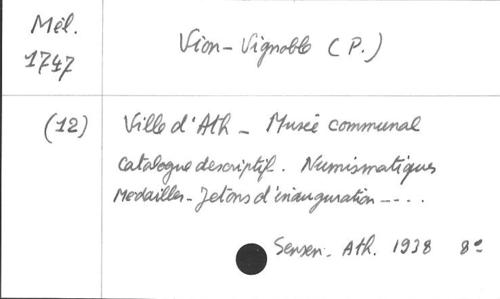 Mél.
1747
Vion-Vignoble (P.)
(12)
Ville d'Ath - Musée communal
Catalogue descriptif. Numismatiques
Medailles - Jetons d'inauguration -....
Ath. 1938 8°